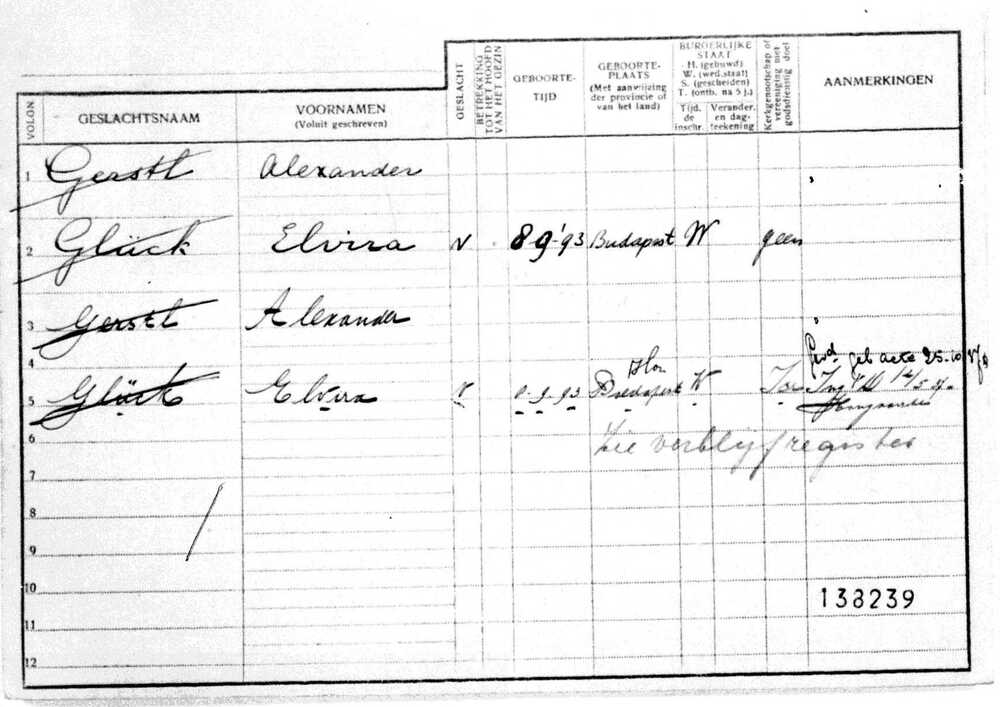 VOLGN
GESLACHTSNAAM
VOORNAMEN
(Voluit geschreven)
GESLACHT
BETREKKING
TOT HET HOOFD
VAN HET GEZIN
GEBOORTE-
TIJD
GEBOORTE-
PLAATS
(Met aanwijzing
der provincie of
van het land)
BURGERLIJKE
STAAT
H. (gehuwd)
W. (wed.staat)
S. (gescheiden)
T. (ontb. na 5 j.)
Tijd.
de
inschr.
Verander.
en dag-
teekening
Kerkgenootschap of
vereeniging met
godsdienstig doel
AANMERKINGEN
1 Gerstl Alexander
2 Glück Elvira V 8 9 '93 Budapest W geen
3 Gerstl Alexander
4 geb acte 25.10
5 Glück Elvira V 8.9.93 Budapest W Isr
Hon
6 Zie verblijfregister
7
8
9
10 138239
11
12